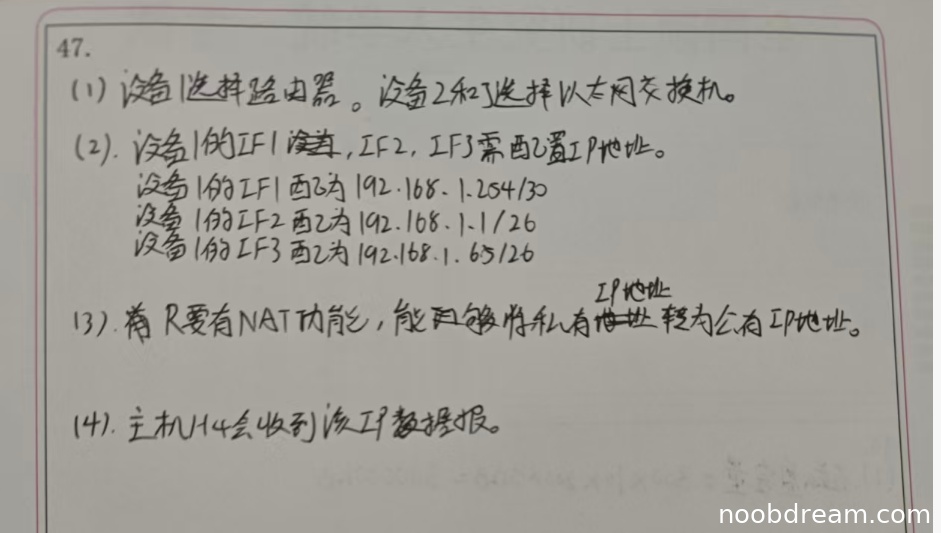 47.
(1) 设备1选择路由器。设备2和3选择以太网交换机。
(2). 设备1的IF1, IF2, IF3需配置IP地址。
设备1的IF1配为192.168.1.254/30
设备1的IF2配为192.168.1.1/26
设备1的IF3配为192.168.1.65/26
IP地址
(3). R要有NAT功能,能够将私有转为公有IP地址。
(4). 主机H4会收到该IP数据报。
noobdream.com